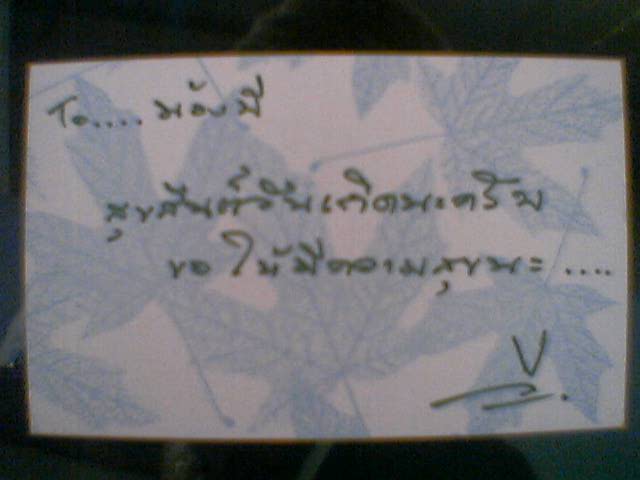 To.... น้องบี
สุขสันต์วันเกิดนะครับ
ขอให้มีความสุขนะ ....
V